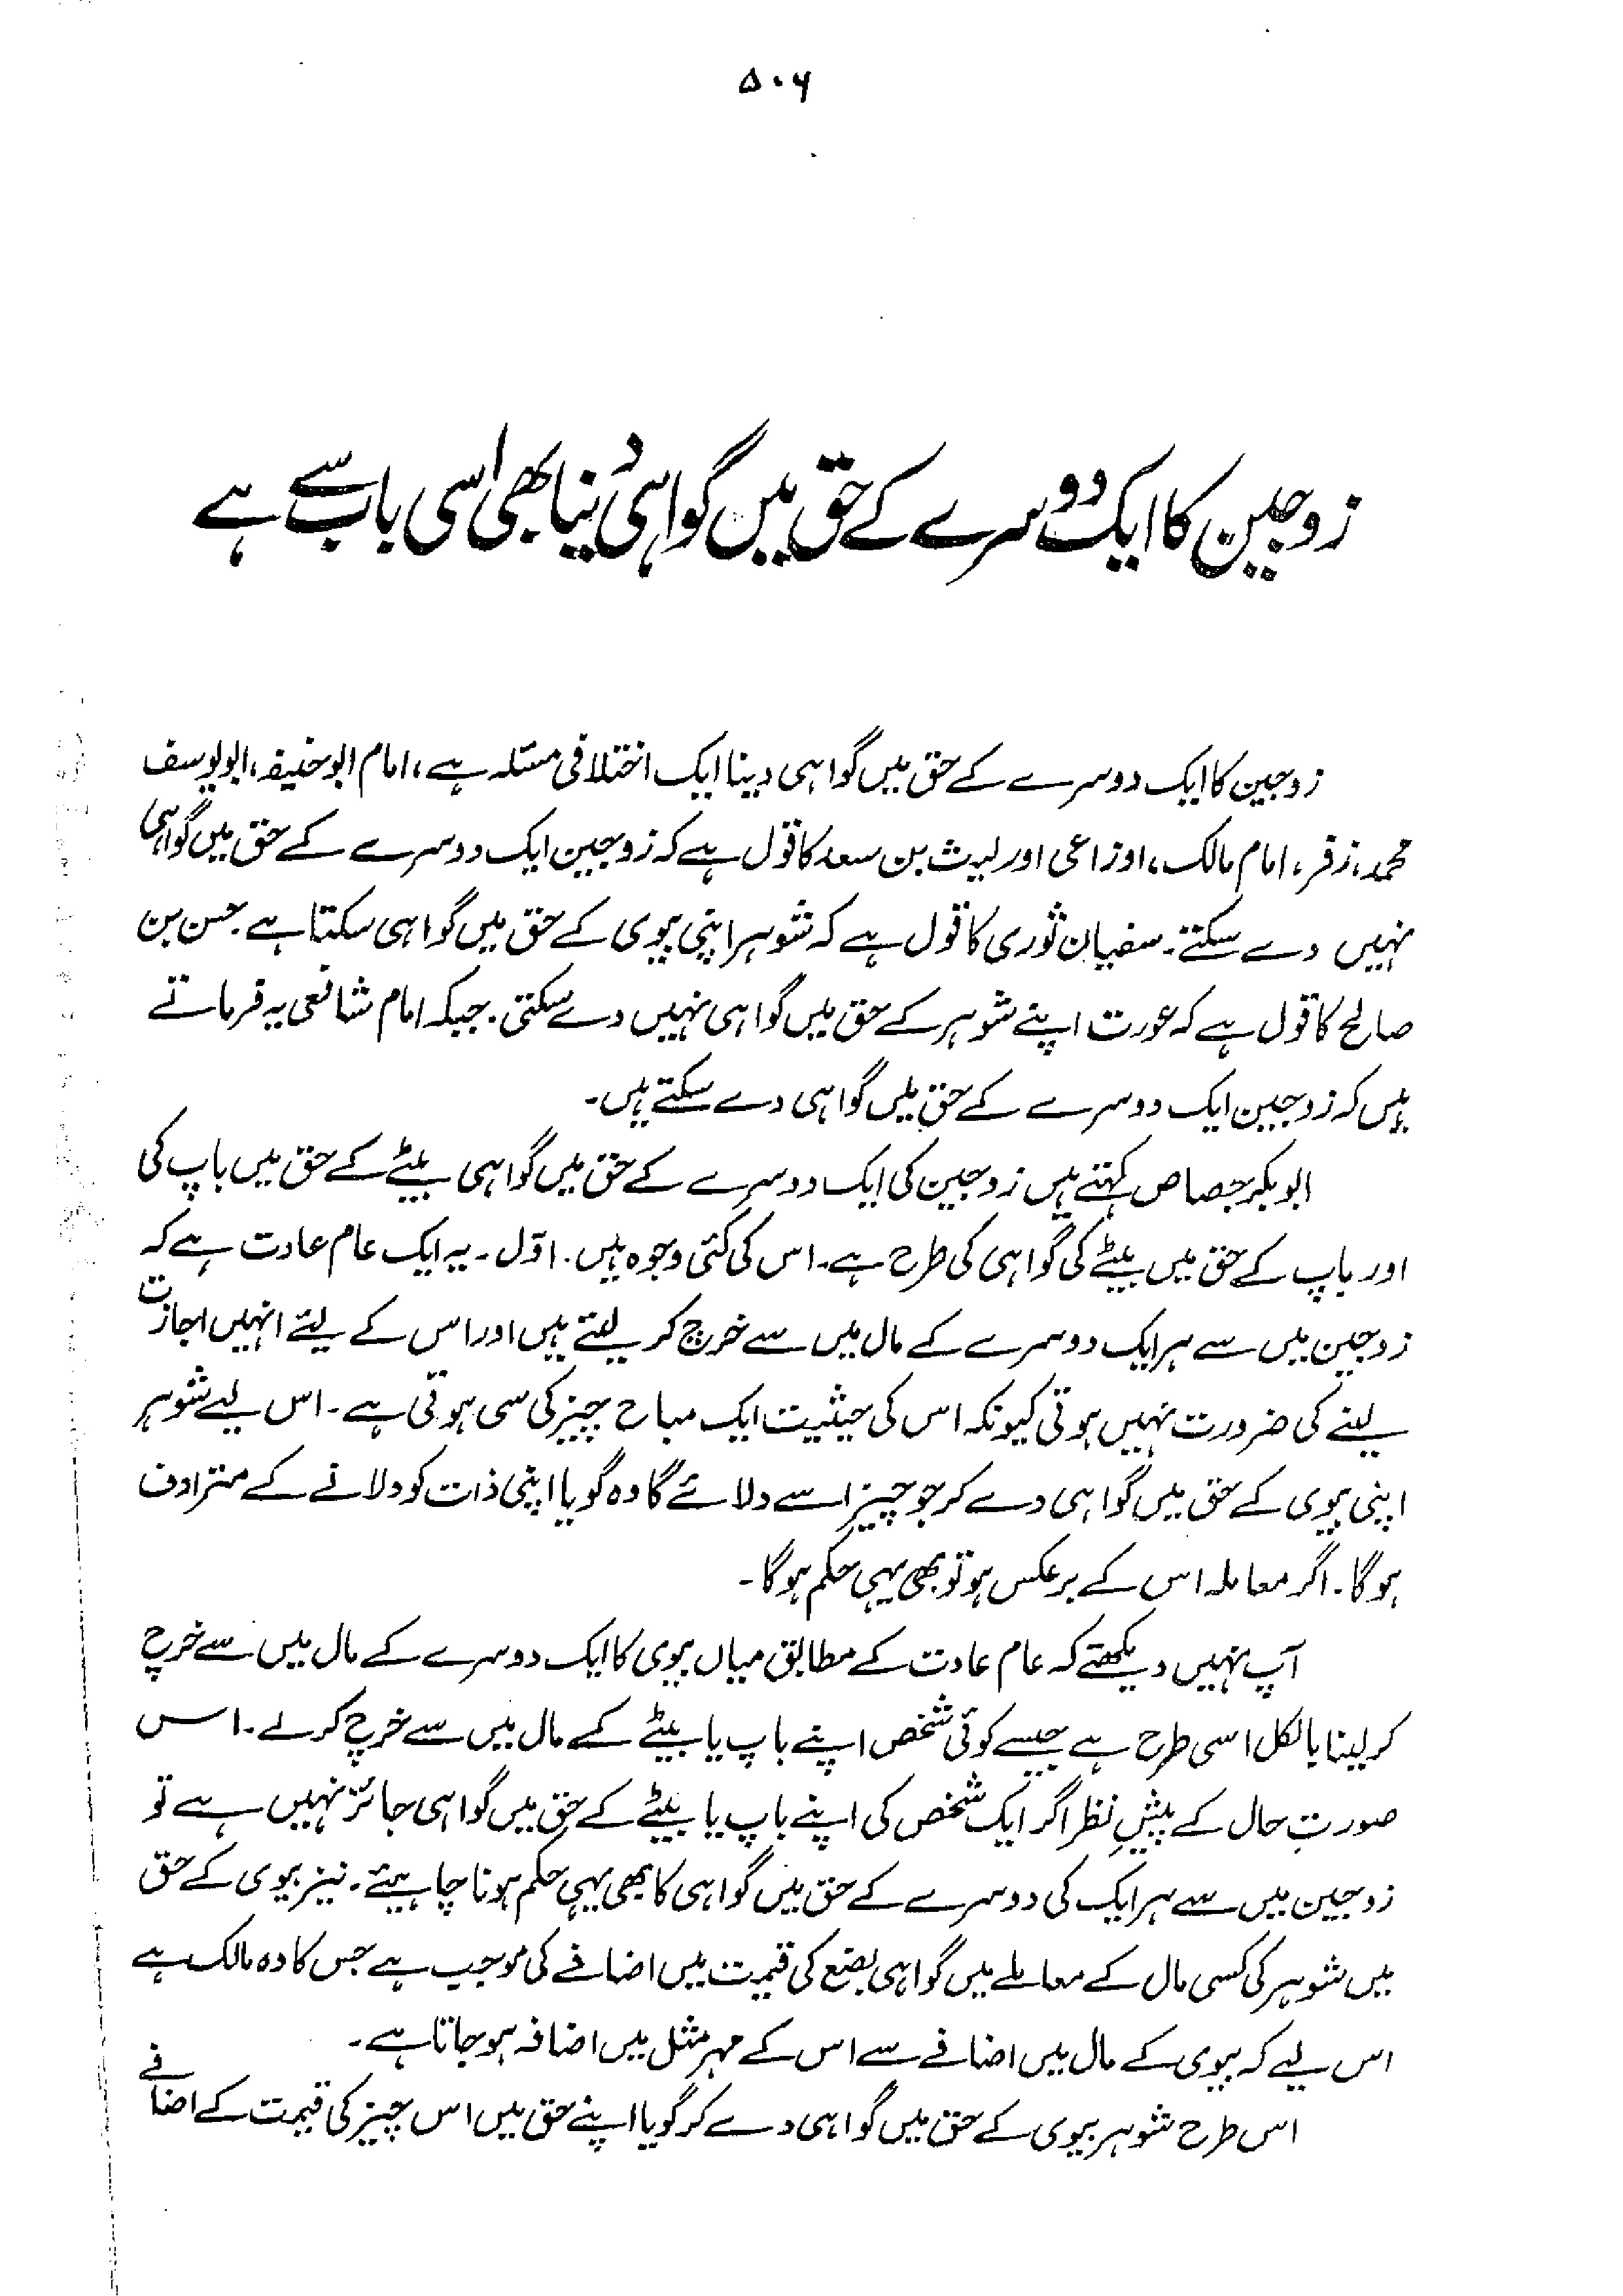 ۵۰۶
زوجین کا ایک دوسرے کے حق میں گواہی دینا بھی اسی باب سے ہے
زوجین کا ایک دوسرے کے حق میں گواہی دینا ایک اختلافی مسئلہ ہے، امام ابوحنیفہ، ابویوسف
محمد، زفر، امام مالک، اوزاعی اور لیث بن سعد کا قول ہے کہ زوجین ایک دوسرے کے حق میں گواہی
نہیں دے سکتے۔ سفیان ثوری کا قول ہے کہ شوہر اپنی بیوی کے حق میں گواہی سکتا ہے۔ حسن بن
صالح کا قول ہے کہ عورت اپنے شوہر کے حق میں گواہی نہیں دے سکتی۔ جبکہ امام شافعی یہ فرماتے
ہیں کہ زوجین ایک دوسرے کے حق میں گواہی دے سکتے ہیں۔
ابوبکر جصاص کہتے ہیں زوجین کی ایک دوسرے کے حق میں گواہی بیٹے کے حق میں باپ کی
اور باپ کے حق میں بیٹے کی گواہی کی طرح ہے۔ اس کی کئی وجوہ ہیں۔ اوّل۔ یہ ایک عام عادت ہے کہ
زوجین میں سے ہر ایک دوسرے کے مال میں سے خرچ کر لیتے ہیں اور اس کے لیئے انہیں اجازت
لینے کی ضرورت نہیں ہوتی کیونکہ اس کی حیثیت ایک مباح چیز کی سی ہوتی ہے۔ اس لیے شوہر
اپنی بیوی کے حق میں گواہی دے کر جو چیز اسے دلائے گا وہ گویا اپنی ذات کو دلانے کے مترادف
ہوگا۔ اگر معاملہ اس کے برعکس ہو تو بھی یہی حکم ہوگا۔
آپ نہیں دیکھتے کہ عام عادت کے مطابق میاں بیوی کا ایک دوسرے کے مال میں سے خرچ
کر لینا بالکل اسی طرح ہے جیسے کوئی شخص اپنے باپ یا بیٹے کے مال میں سے خرچ کرلے۔ اس
صورتِ حال کے پیشِ نظر اگر ایک شخص کی اپنے باپ یا بیٹے کے حق میں گواہی جائز نہیں ہے تو
زوجین میں سے ہر ایک کی دوسرے کے حق میں گواہی کا بھی یہی حکم ہونا چاہیئے۔ نیز بیوی کے حق
میں شوہر کی کسی مال کے معاملے میں گواہی بضع کی قیمت میں اضافے کی موجب ہے جس کا وہ مالک ہے
اس لیے کہ بیوی کے مال میں اضافے سے اس کے مہر مثل میں اضافہ ہو جاتا ہے۔
اس طرح شوہر بیوی کے حق میں گواہی دے کر گویا اپنے حق میں اس چیز کی قیمت کے اضافے